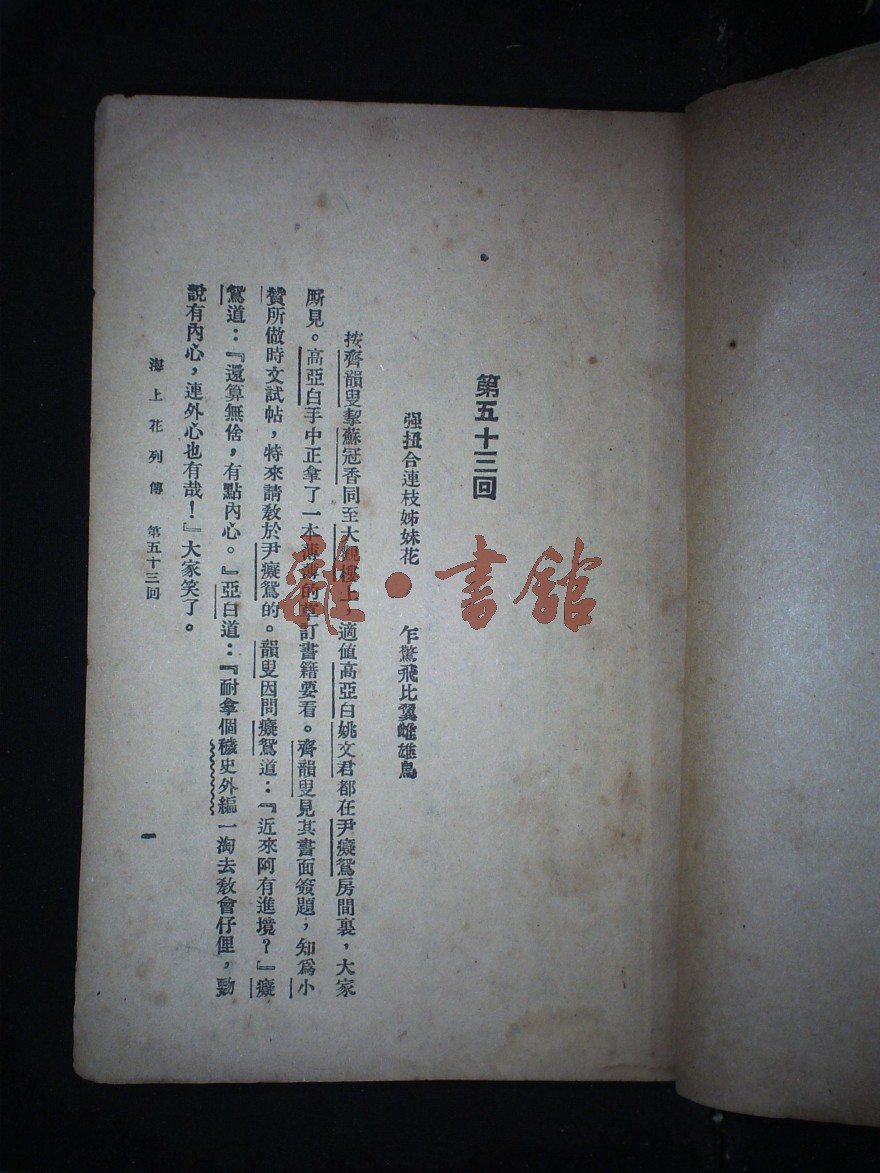 第五十三回
强扭合連枝姊妹花　乍驚飛比翼雌雄鳥
按齊韻叟挈蘇冠香同至大觀樓上，適値高亞白姚文君都在尹癡鴛房間裏，大家
厮見。高亞白手中正拿了一本薄薄的草訂書籍要看。齊韻叟見其書面簽題，知爲小
贊所做時文試帖，特來請敎於尹癡鴛的。韻叟因問癡鴛道：『近來阿有進境？』癡
鴛道：『還算無俗，有點內心。』亞白道：『耐拿個穢史外編一淘去敎會仔俚，勁
說有內心，連外心也有哉！』大家笑了。
海上花列傳　第五十三回
一
雜·書館